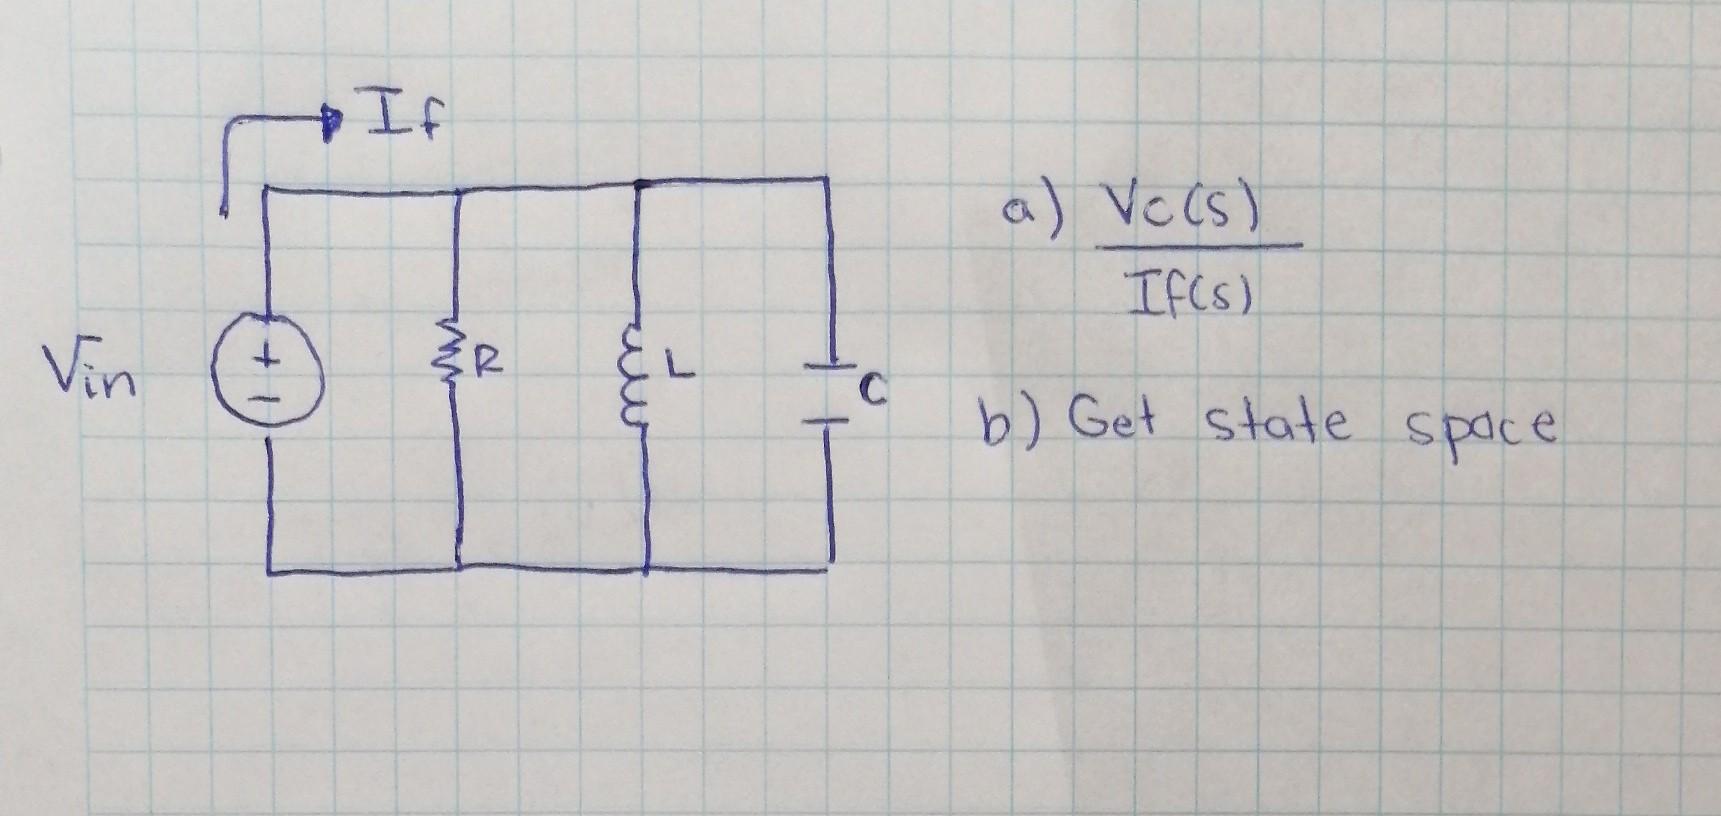 If
Vin
+
−
R
L
C
a) Vc(s)
If(s)
b) Get state space